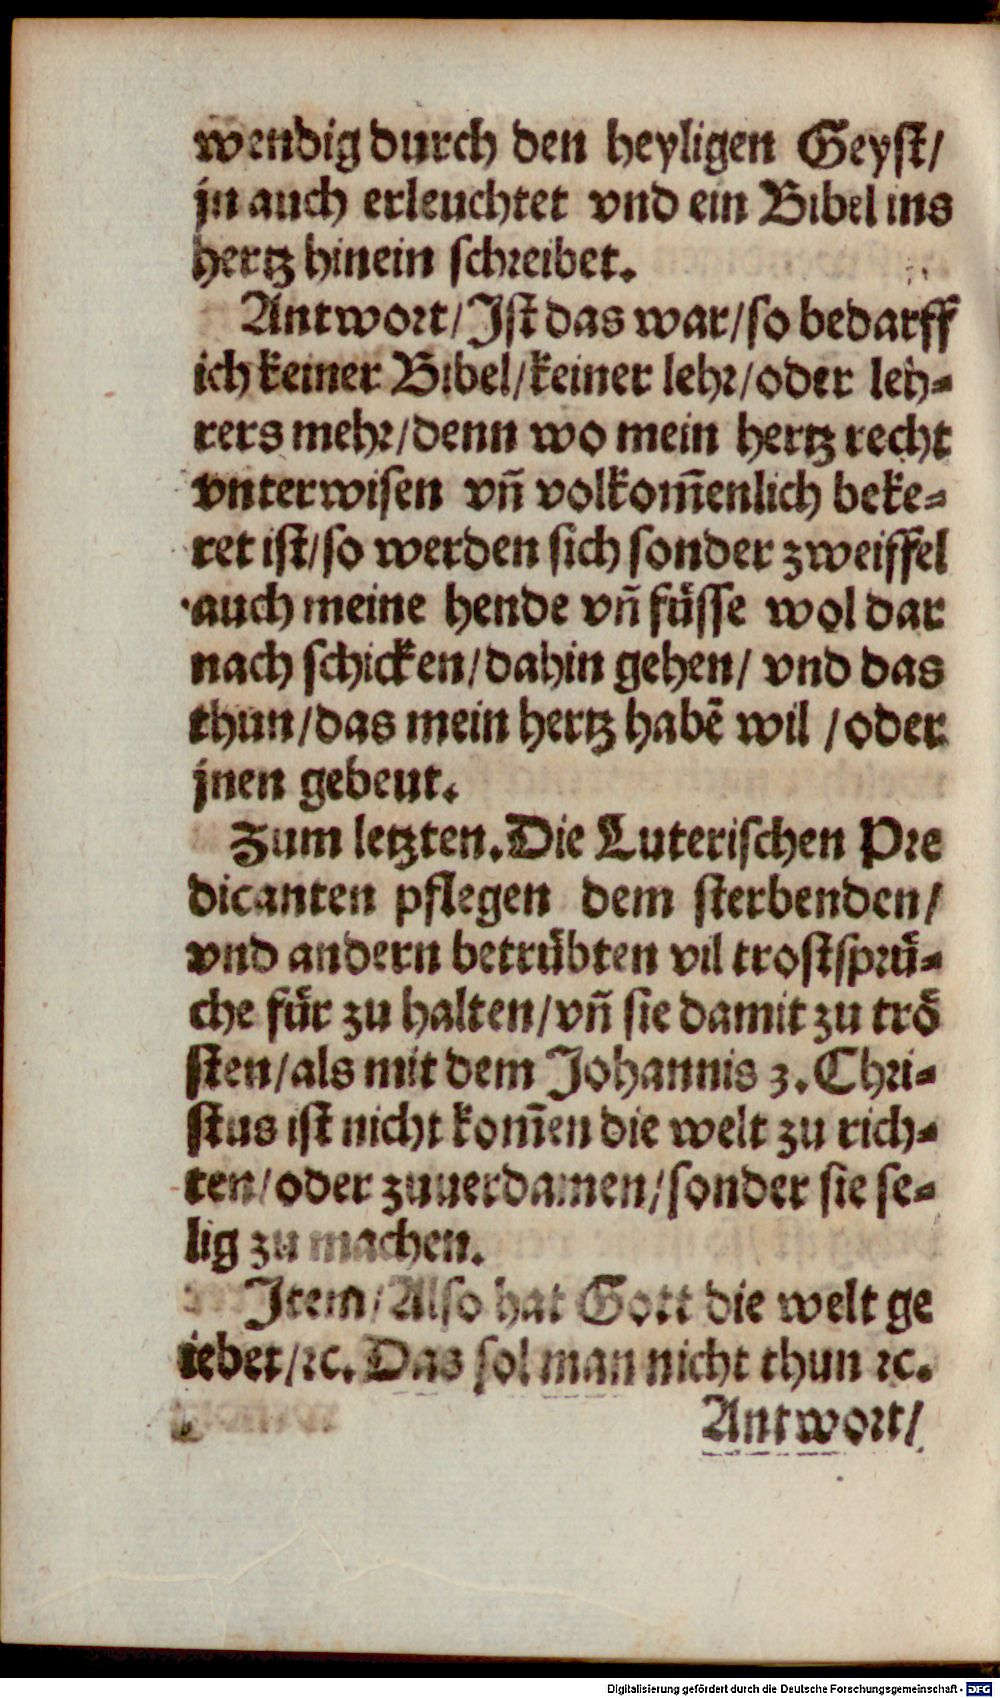 wendig durch den heyligen Geyst/
jn auch erleuchtet vnd ein Bibel ins
hertz hinein schreibet.
Antwort/Ist das war/so bedarff
ich keiner Bibel/keiner lehr/oder leh-
rers mehr/denn wo mein hertz recht
vnterwisen vñ volkom̃enlich beke-
ret ist/so werden sich sonder zweiffel
auch meine hende vñ füsse wol dar
nach schicken/dahin gehen/ vnd das
thun/das mein hertz habẽ wil /oder
jnen gebeut.
Zum letzten. Die Luterischen Pre
dicanten pflegen dem sterbenden/
vnd andern betrübten vil trostsprü-
che für zu halten/vñ sie damit zu trö
sten/als mit dem Johannis 3. Chri-
stus ist nicht kom̃en die welt zu rich-
ten/oder zuuerdamen/sonder sie se-
lig zu machen.
Item/Also hat Gott die welt ge
iebet/ꝛc. Das sol man nicht thun ꝛc.
Antwort/
Digitalisierung gefördert durch die Deutsche Forschungsgemeinschaft - DFG